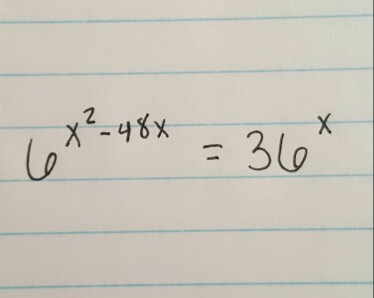 6^{x^2-48x} = 36^x